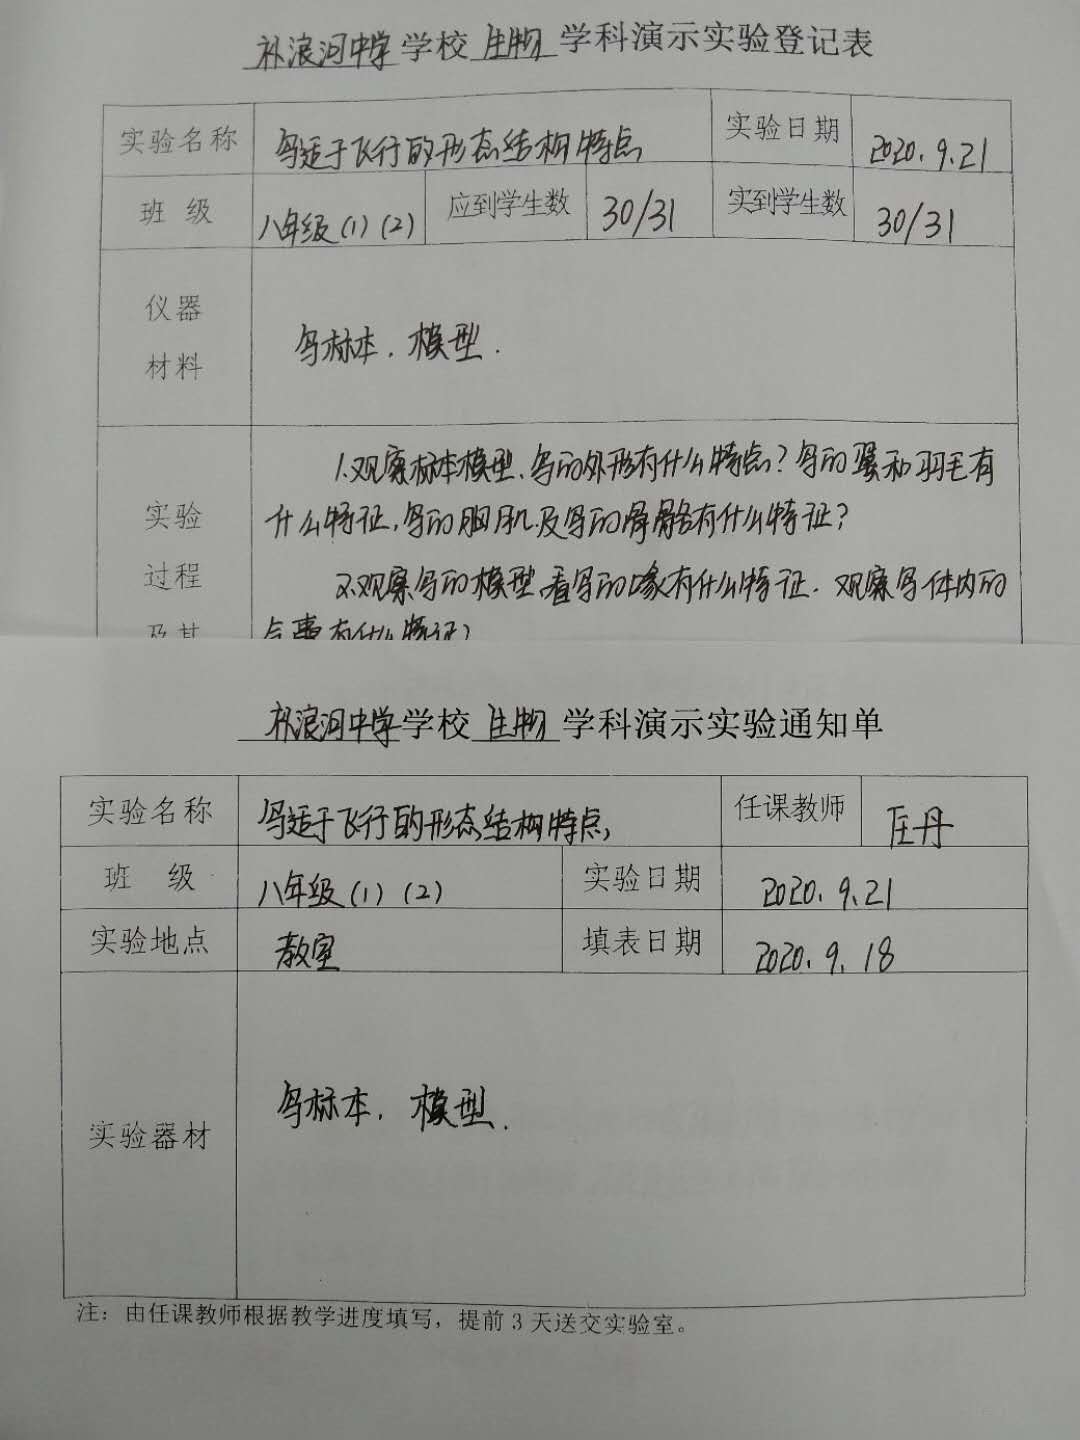 补浪河中学 学校 生物 学科演示实验登记表
实验名称 鸟适于飞行的形态结构特点 实验日期 2020.9.21
班 级 八年级(1)(2) 应到学生数 30/31 实到学生数 30/31
仪器
材料
鸟标本.模型.
1.观察标本模型,鸟的外形有什么特点?鸟的翼和羽毛有
什么特征,鸟的胸肌及鸟的骨骼有什么特征?
2.观察鸟的模型,看鸟的喙有什么特征.观察鸟体内的
气囊有什么特征?
实验
过程
及其
补浪河中学 学校 生物 学科演示实验通知单
实验名称 鸟适于飞行的形态结构特点, 任课教师 丹
班 级 八年级(1)(2) 实验日期 2020.9.21
实验地点 教室 填表日期 2020.9.18
实验器材 鸟标本.模型.
注：由任课教师根据教学进度填写，提前3天送交实验室。